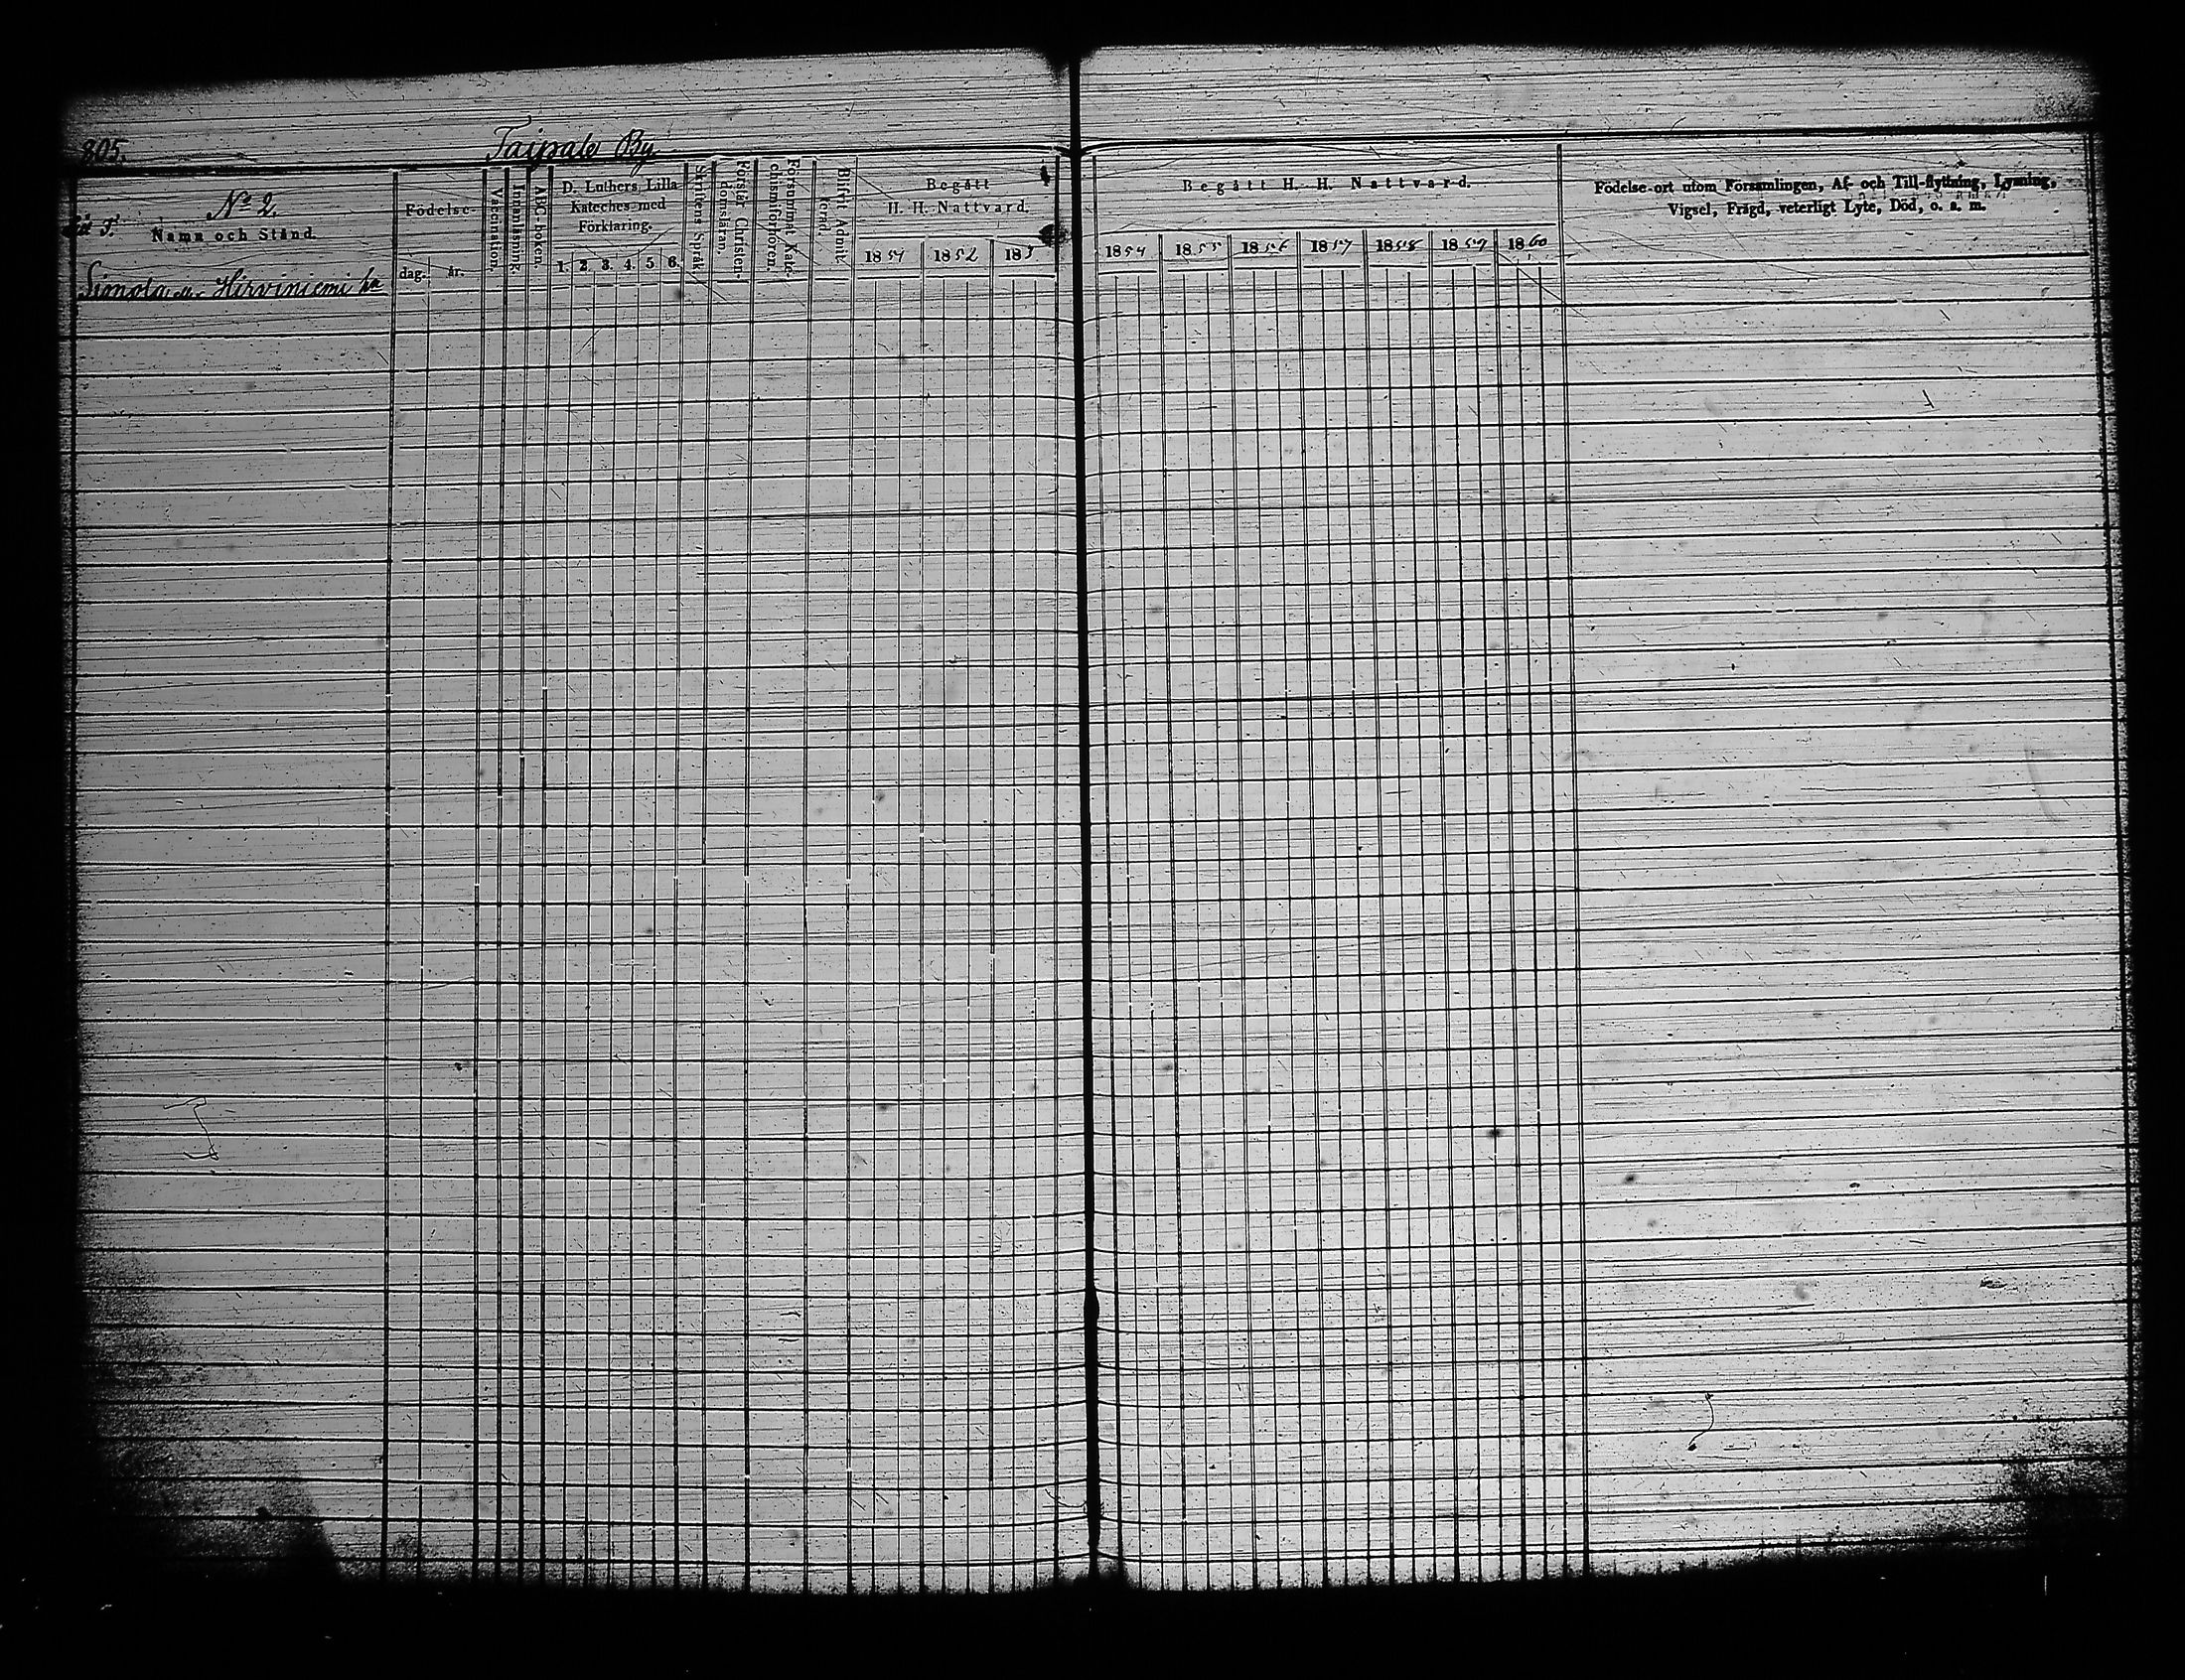 805.
Taipale By
Nº 2.
Namn och Stånd.
Simola a. Hirviniemi ha
Födelse-
dag. år.
Vaccination.
Innanläsning.
ABC-boken.
D. Luthers Lilla
Kateches med
Förklaring.
1. 2. 3. 4. 5 6.
Skriftens Språk.
Förstår Christen-
domsläran.
Försummat Kate-
chismiförhören.
Blifvit Admit-
terad.
Begått
H. H. Nattvard.
1851 1852 185
Begått H. H. Nattvard.
1854 1855 1856 1857 1858 1859 1860
Födelse-ort utom Församlingen, Af- och Till-flyttning, Lysning,
Vigsel, Frägd, veterligt Lyte, Död, o. s. m.